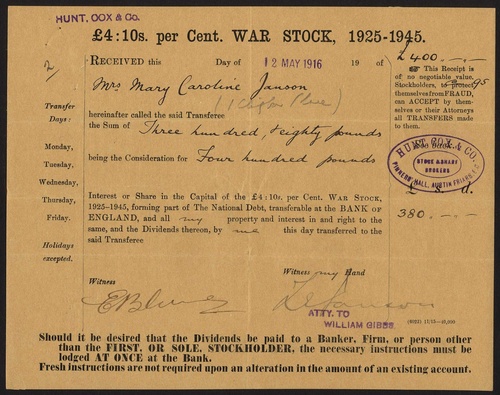 HUNT, COX & Co.
£4:10s. per Cent. WAR STOCK, 1925-1945.
RECEIVED this Day of 12 MAY 1916 19 of
Mrs Mary Caroline Janson
hereinafter called the said Transferee
the Sum of Three hundred, & eighty pounds
being the Consideration for Four hundred pounds
Interest or Share in the Capital of the £4:10s. per Cent. WAR STOCK,
1925-1945, forming part of The National Debt, transferable at the BANK OF
ENGLAND, and all my property and interest in and right to the
same, and the Dividends thereon, by me this day transferred to the
said Transferee
Transfer
Days:
Monday,
Tuesday,
Wednesday,
Thursday,
Friday.
Holidays
excepted.
£400 . - . -
This Receipt is
of no negotiable value.
Stockholders, to protect
themselves from FRAUD,
can ACCEPT by them-
selves or their Attorneys
all TRANSFERS made
to them.
95
HUNT COX & CO.
STOCK & SHARE
BROKERS
PINNERS' HALL, AUSTIN FRIARS, E.C.
£ s. d.
380 . - . -
Witness
Witness my Hand
ATTY. TO
WILLIAM GIBBS
Should it be desired that the Dividends be paid to a Banker, Firm, or person other
than the FIRST, OR SOLE, STOCKHOLDER, the necessary instructions must be
lodged AT ONCE at the Bank.
Fresh instructions are not required upon an alteration in the amount of an existing account.